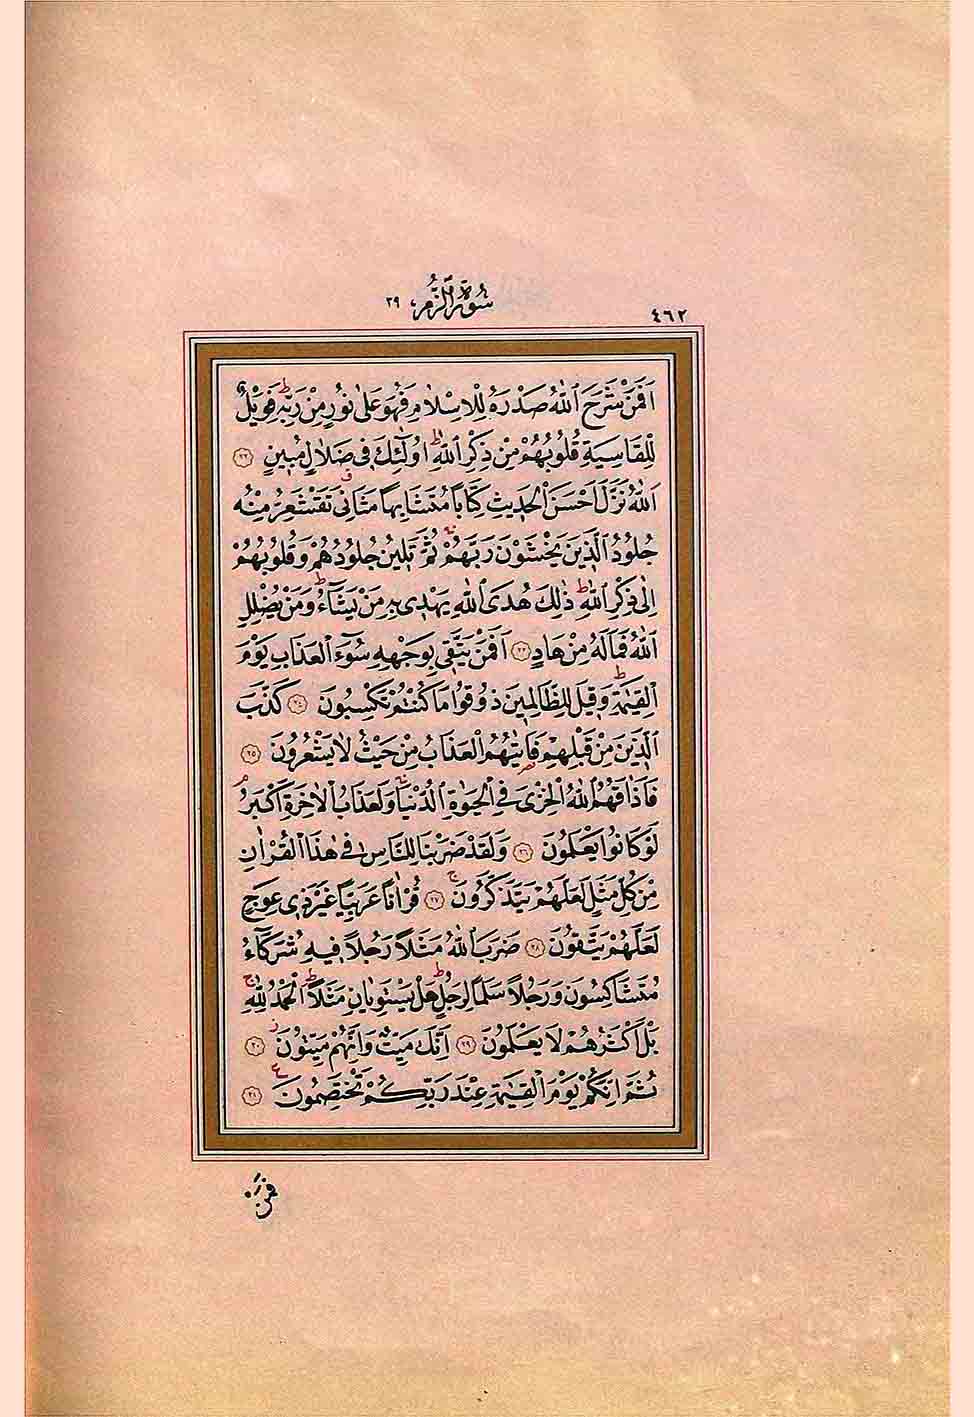 سُورَةُ الزُّمَرِ ٣٩
٤٦٢
اَفَمَنْ شَرَحَ اللّٰهُ صَدْرَهُ لِلْاِسْلَامِ فَهُوَ عَلٰى نُورٍ مِنْ رَبِّهِ فَوَيْلٌ
لِلْقَاسِيَةِ قُلُوبُهُمْ مِنْ ذِكْرِ اللّٰهِ اُولٰٓئِكَ فِى ضَلَالٍ مُبِينٍ ٢٢
اَللّٰهُ نَزَّلَ اَحْسَنَ الْحَدِيثِ كِتَابًا مُتَشَابِهًا مَثَانِىَ تَقْشَعِرُّ مِنْهُ
جُلُودُ الَّذِينَ يَخْشَوْنَ رَبَّهُمْ ثُمَّ تَلِينُ جُلُودُهُمْ وَقُلُوبُهُمْ
اِلٰى ذِكْرِ اللّٰهِ ذٰلِكَ هُدَى اللّٰهِ يَهْدِى بِهِ مَنْ يَشَٓاءُ وَمَنْ يُضْلِلِ
اللّٰهُ فَمَا لَهُ مِنْ هَادٍ ٢٣ اَفَمَنْ يَتَّقِى بِوَجْهِهِ سُٓوءَ الْعَذَابِ يَوْمَ
الْقِيٰمَةِ وَقِيلَ لِلظَّالِمِينَ ذُوقُوا مَا كُنْتُمْ تَكْسِبُونَ ٢٤ كَذَّبَ
الَّذِينَ مِنْ قَبْلِهِمْ فَاَتٰيهُمُ الْعَذَابُ مِنْ حَيْثُ لَا يَشْعُرُونَ ٢٥
فَاَذَاقَهُمُ اللّٰهُ الْخِزْىَ فِى الْحَيٰوةِ الدُّنْيَا وَلَعَذَابُ الْاٰخِرَةِ اَكْبَرُ
لَوْ كَانُوا يَعْلَمُونَ ٢٦ وَلَقَدْ ضَرَبْنَا لِلنَّاسِ فِى هٰذَا الْقُرْاٰنِ
مِنْ كُلِّ مَثَلٍ لَعَلَّهُمْ يَتَذَكَّرُونَ ٢٧ قُرْاٰنًا عَرَبِيًّا غَيْرَ ذِى عِوَجٍ
لَعَلَّهُمْ يَتَّقُونَ ٢٨ ضَرَبَ اللّٰهُ مَثَلًا رَجُلًا فِيهِ شُرَكَٓاءُ
مُتَشَاكِسُونَ وَرَجُلًا سَلَمًا لِرَجُلٍ هَلْ يَسْتَوِيَانِ مَثَلًا اَلْحَمْدُ لِلّٰهِ
بَلْ اَكْثَرُهُمْ لَا يَعْلَمُونَ ٢٩ اِنَّكَ مَيِّتٌ وَاِنَّهُمْ مَيِّتُونَ ٣٠
ثُمَّ اِنَّكُمْ يَوْمَ الْقِيٰمَةِ عِنْدَ رَبِّكُمْ تَخْتَصِمُونَ ٣١
فَمَنْ